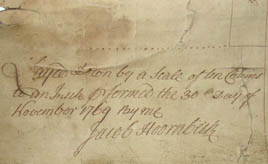 Layed Down by a Scale of ten Chains
to an Inch & formed the 30th Day of
November 1769 Pr me
Jacob Hoornbeek